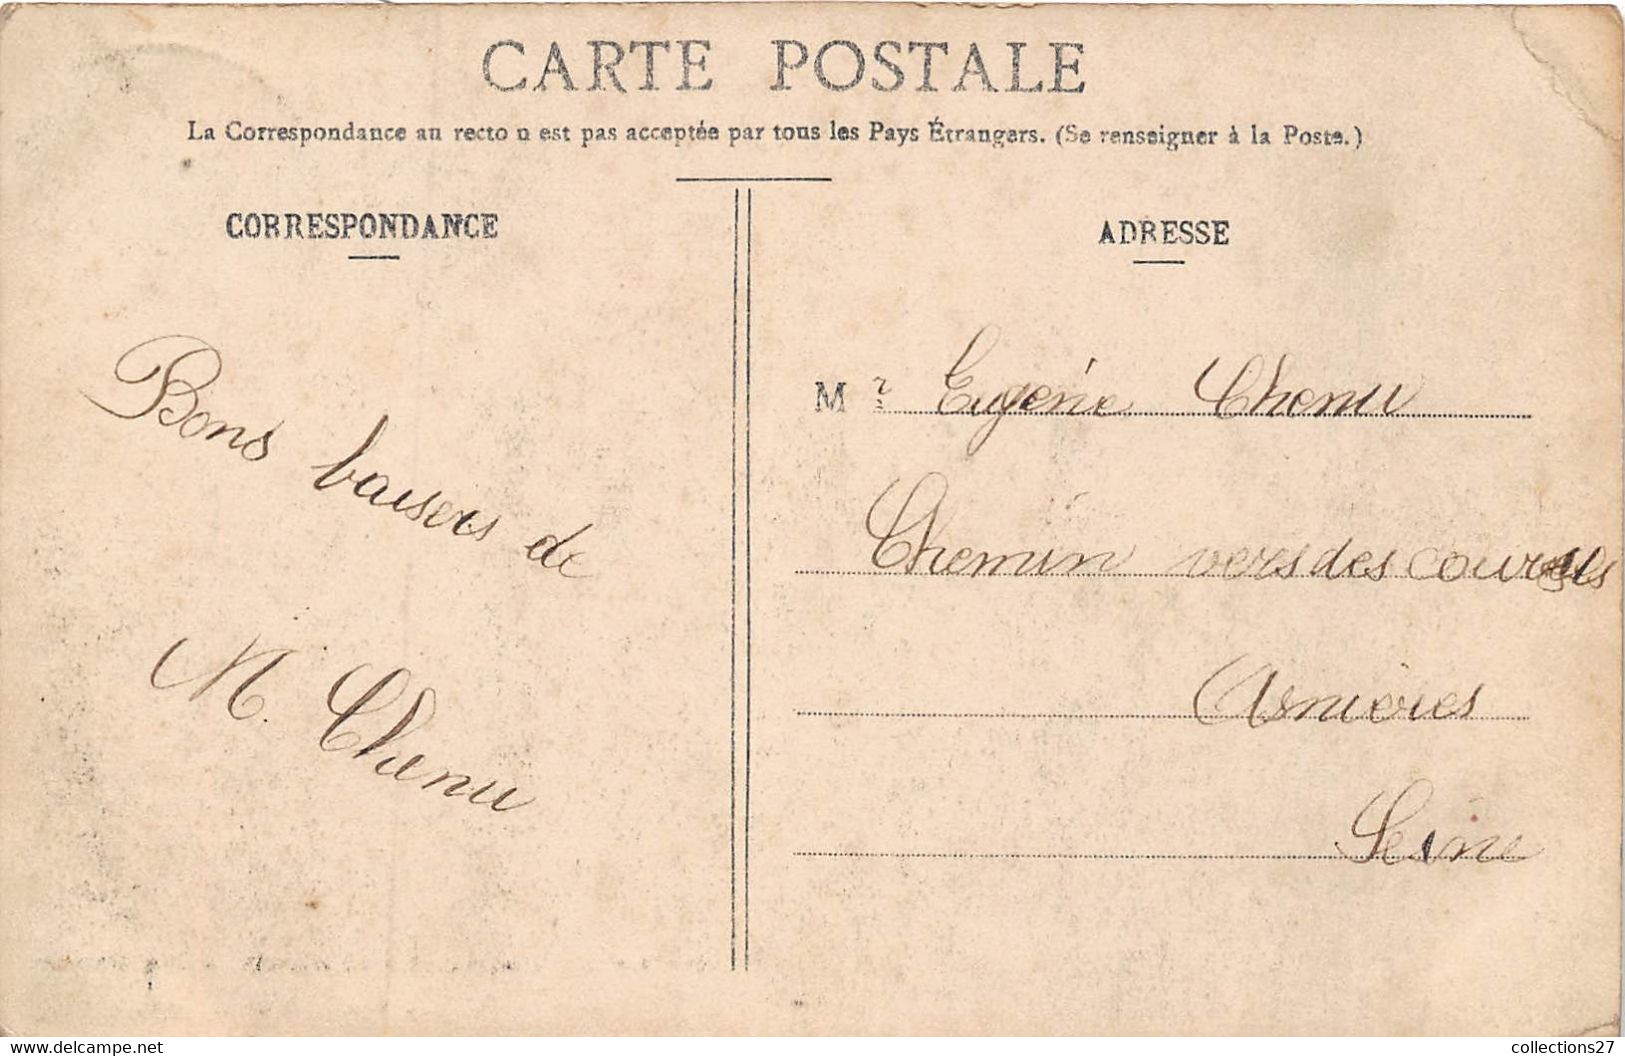 CARTE POSTALE
La Correspondance au recto n est pas acceptée par tous les Pays Étrangers. (Se renseigner à la Poste.)
CORRESPONDANCE
Bons baisers de
M. Chenu
ADRESSE
Mr Eugénie Chenu
Chemin vers des
Asnières
Seine
www.delcampe.net
collections27